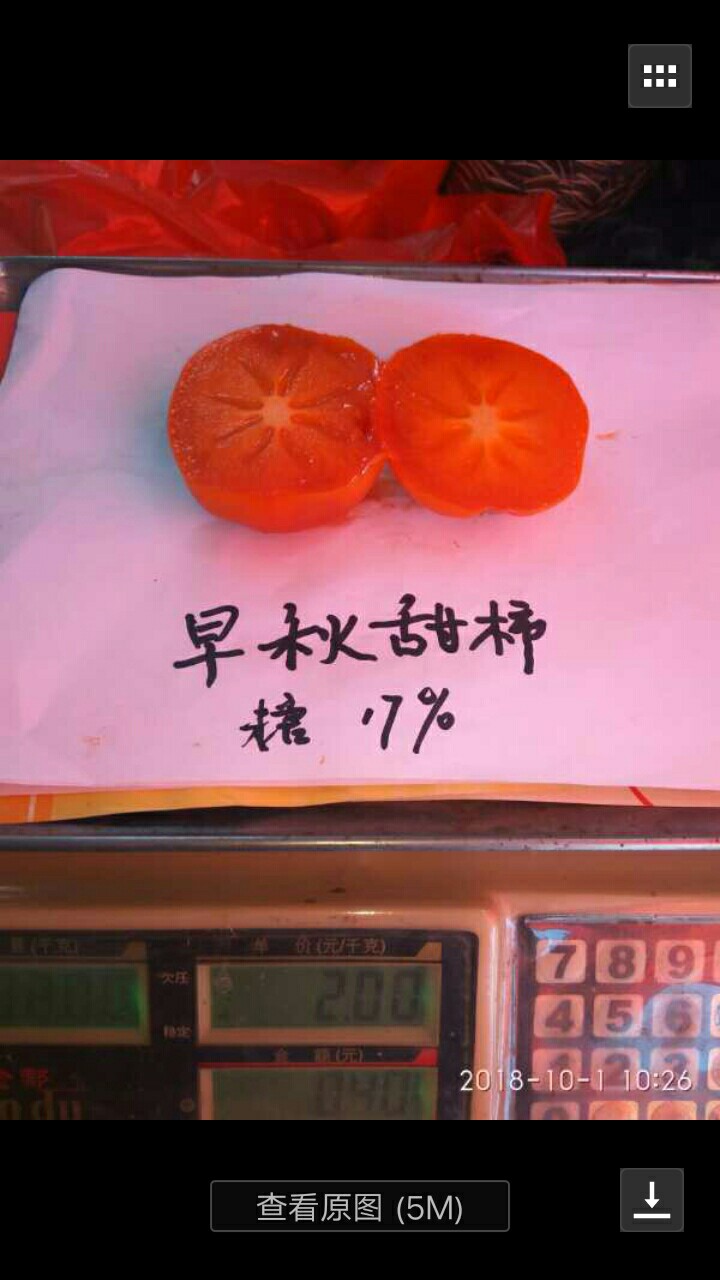 早秋甜柿
糖 17%
量(千克)
单 价(元/千克)
欠压
2.00
稳定
金 额(元)
0.40
7 8 9
4 5 6
1 2 3
2018-10-1 10:26
查看原图 (5M)